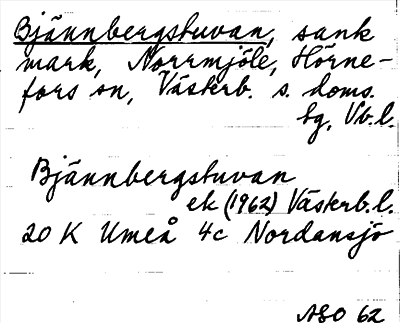 Bjännbergstuvan, sank
mark, Norrmjöle, Hörne-
fors sn, Västerb. s. doms.
bg, Vb. l.
Bjännbergstuvan
ek (1962) Västerb. l.
20 K Umeå 4c Nordansjö
ASO 62